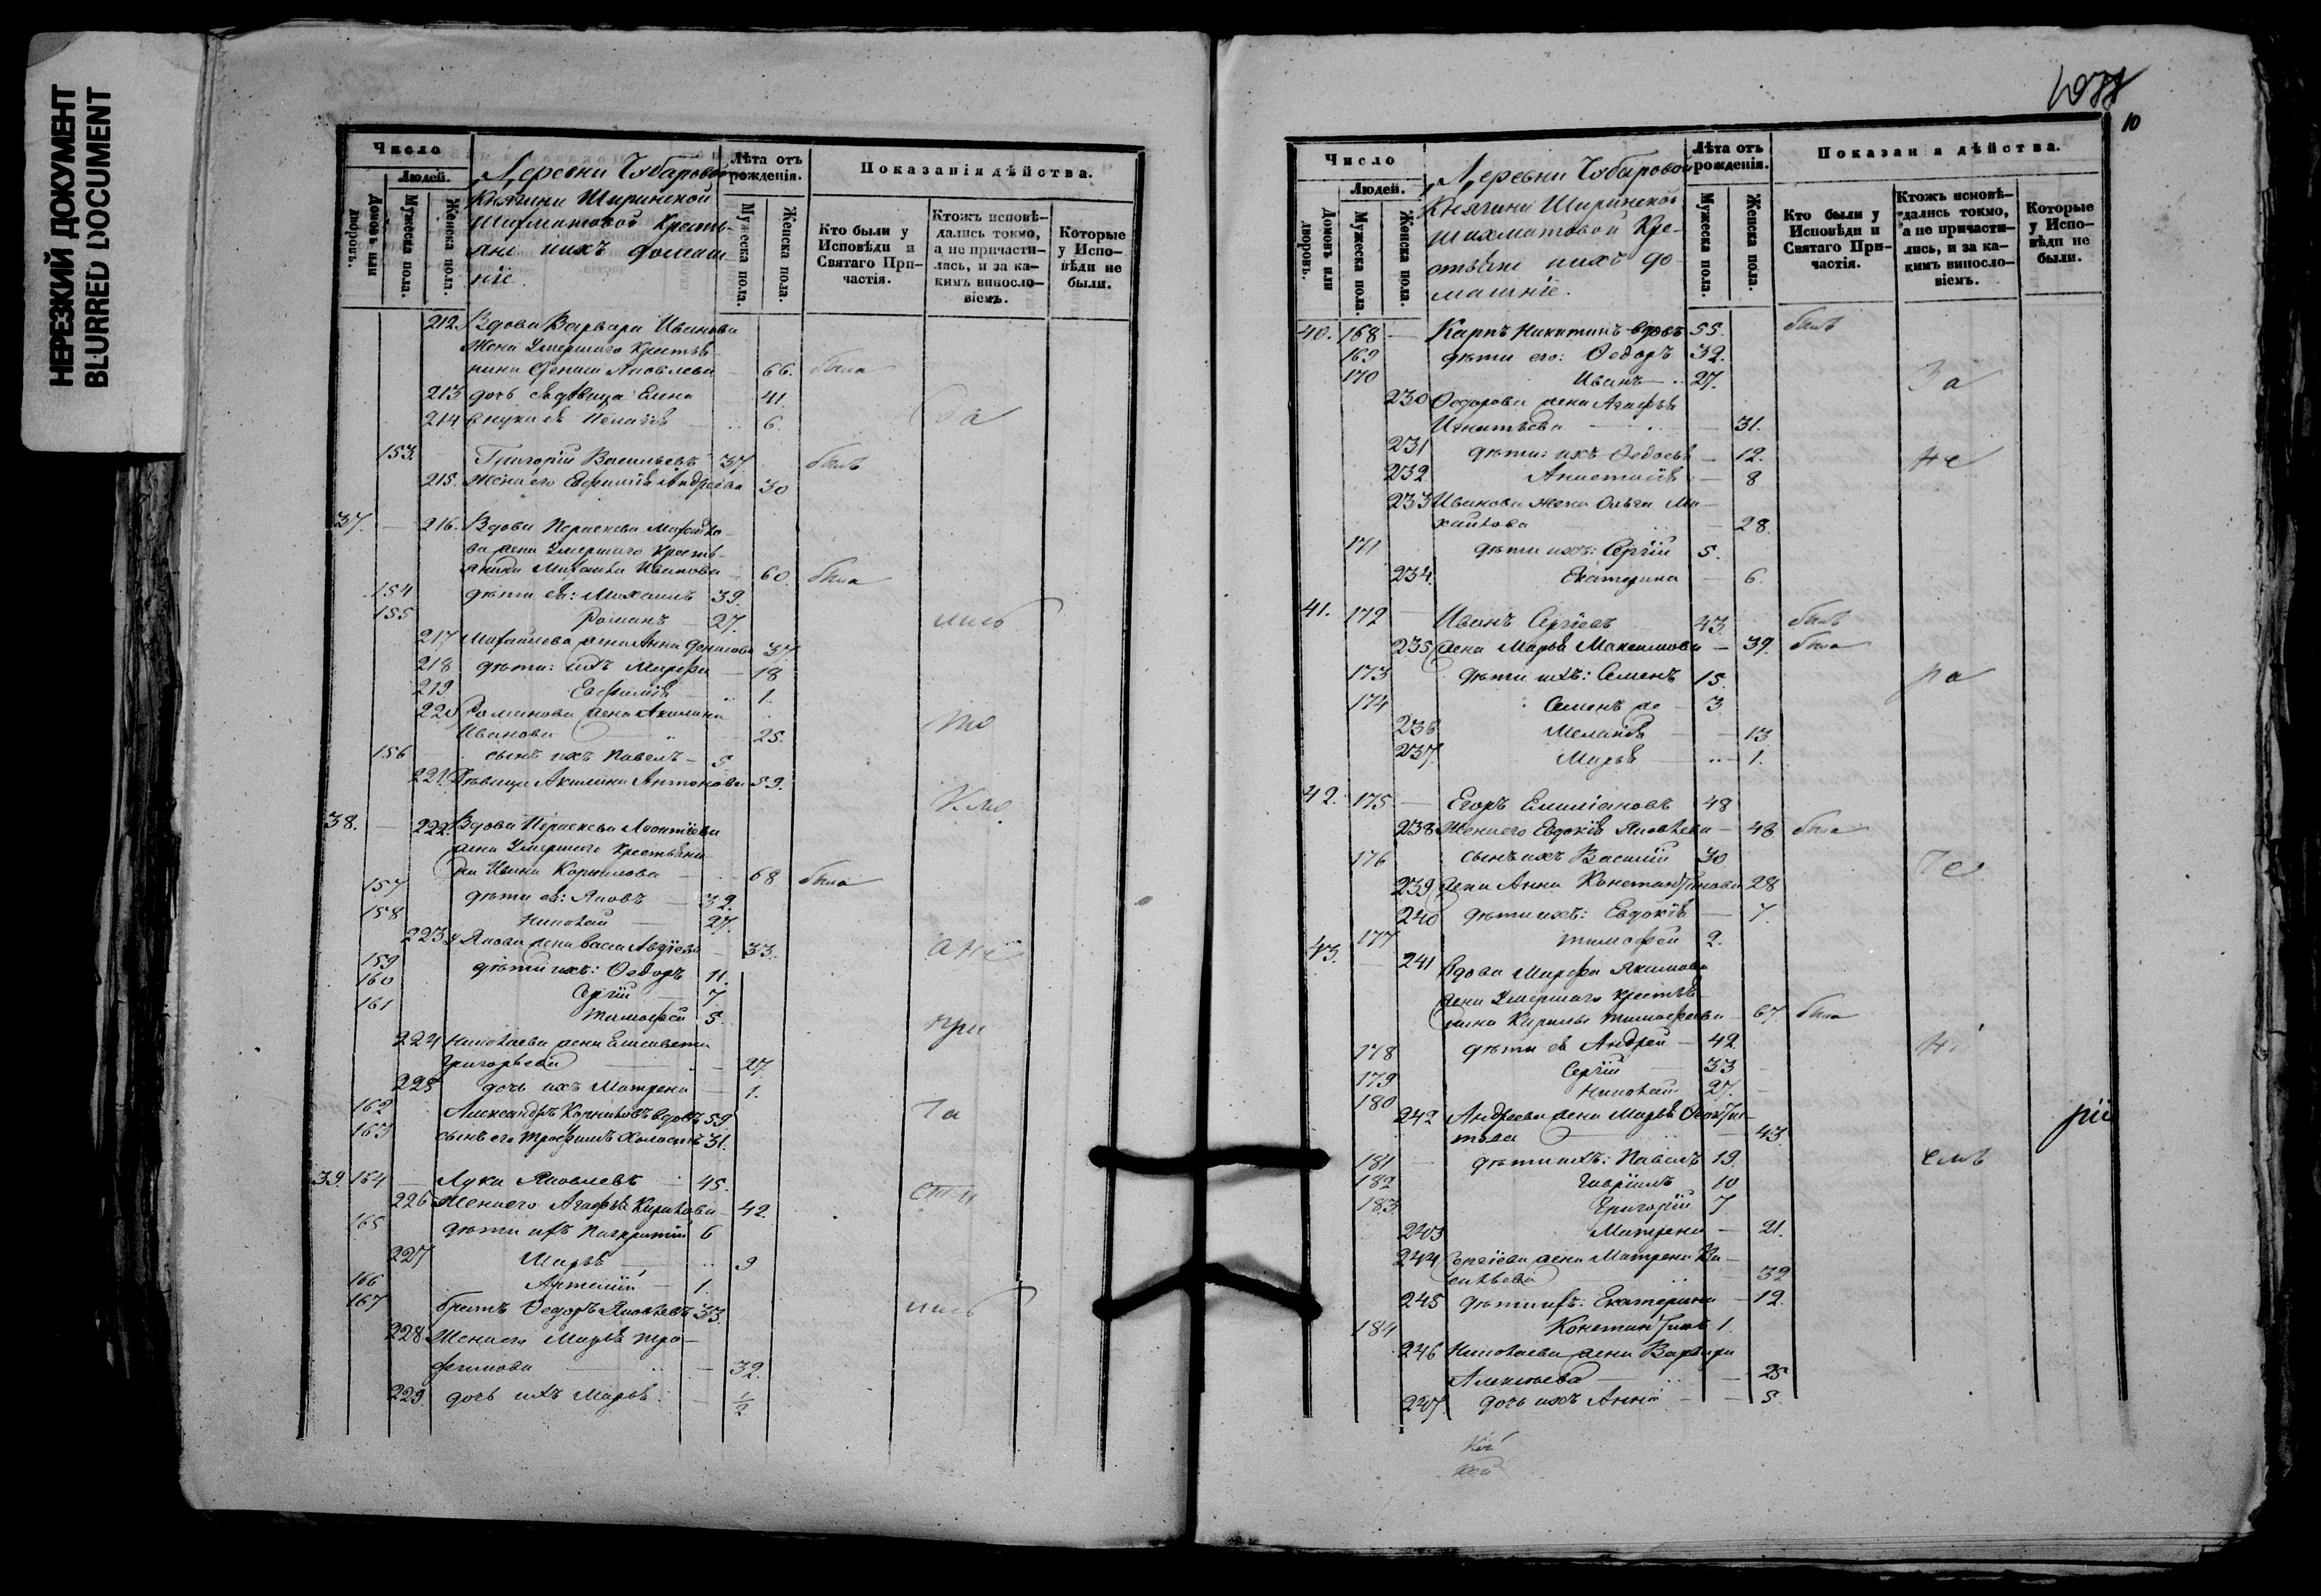 НЕРЕЗКИЙ ДОКУМЕНТ
BLURRED DOCUMENT
Число
Людей.
Домовъ или дворовъ.
Мужеска пола.
Женска пола.
Деревни Чубаровой
Княгини Ширинской
Шихматовой Кресть-
яне ихъ домаш-
ніе.
Лѣта отъ рожденія.
Мужеска пола.
Женска пола.
Показанія дѣйства.
Кто были у Исповѣди и Святаго При-частія.
Ктожъ исповѣ-дались токмо, а не причасти-лись, и за ка-кимъ виносло-віемъ.
Которые у Испо-вѣди не были.
212. Вдова Варвара Иванова
жена умершаго Крестья-
нина Яковлева 66. была
213 дочь ея дѣвица Елена 41.
214 внука ея Пелагія 6.
153. Григорій Васильевъ 37. былъ
215. Жена его Евфимія Андреева 30
37. 216. Вдова Параскева Михайло-
ва жена умершаго Кресть-
янина Михаила Иванова 60. была
154 дѣти ея: Михаилъ 39.
155 Романъ 27. лись
217 Михайлова жена Анна Денисова 37
218 дѣти ихъ Марфа 18
219. Евфимія 1.
220 Романова жена Акилина то
Иванова 25.
156 сынъ ихъ Павелъ 5
221. Дѣвица Акилина Антонова 59.
38. 222. Вдова Параскева Леонтіева
жена умершаго Крестьяни-
на Ивана Корнилова 68 была
157 дѣти ея: Яковъ 32.
158 Николай 27.
223 Якова жена Васса Авдіева 33. а не
159 дѣти ихъ: Ѳедоръ 11.
160 Сергій 7
161 Тимофей 5. при
224 Николаева жена Елисавета
Григорьева 27.
225 дочь ихъ Матрена 1.
162 Александръ Корниловъ вдовъ 59 ча
163 сынъ его Трофимъ холостъ 31.
39. 164 Лука Яковлевъ 45.
226 Жена его Агафья Кирилова 42. сти
165 дѣти ихъ Панкратій 6
227 Марья 9
166 Артемій 1.
167 братъ Ѳедоръ Яковлевъ 33. лись
228 Жена его Марья Тро-
фимова 32.
229 дочь ихъ Марья 1/2
10
Число
Людей.
Домовъ или дворовъ.
Мужеска пола.
Женска пола.
Деревни Чубаровой
Княгини Ширинской
Шихматовой Кре-
стьяне ихъ до-
машніе.
Лѣта отъ рожденія.
Мужеска пола.
Женска пола.
Показанія дѣйства.
Кто были у Исповѣди и Святаго При-частія.
Ктожъ исповѣ-дались токмо, а не причасти-лись, и за ка-кимъ виносло-віемъ.
Которые у Испо-вѣди не были.
40. 168 Карпъ Никитинъ вдовъ 55. былъ
169 дѣти его: Ѳедоръ 32.
170 Иванъ 27. За
230 Ѳедорова жена Агафья
Игнатьева 31.
231 дѣти ихъ Ѳедосья 12. не
232 Анастасія 8
233 Иванова жена Ольга Ми-
хайлова 28.
171 дѣти ихъ: Сергій 5.
234. Екатерина 6.
41. 172 Иванъ Сергіевъ 43. былъ
235 жена Марья Максимова 39. была
173 дѣти ихъ: Семенъ 15. ра
174 Семенъ же 3
236 Меланія 13
237. Марья 1.
42. 175 Егоръ Емиліановъ 48
238 Жена его Евдокія Яковлева 48. была
176 сынъ ихъ Василій 30
239 жена Анна Константинова 28
240 дѣти ихъ: Евдокія 7.
177 Тимофей 2.
43. 241 Вдова Марфа Якимова
жена умершаго крестья-
нина Кирилы Тимофеева 67. была
178 дѣти ея Андрей 42.
179 Сергій 33
180 Николай 27.
242 Андреева жена Марья
43.
181 дѣти ихъ: Павелъ 19.
182 Гавріилъ 10
183 Григорій 7
243 Матрена 21.
244 Сергіева жена Матрена Ва-
сильева 32
245 дѣти ихъ: Екатерина 12.
184 Константинъ 1.
246 Николаева жена Варвара
Алексѣева 25
247. дочь ихъ Анна 5.